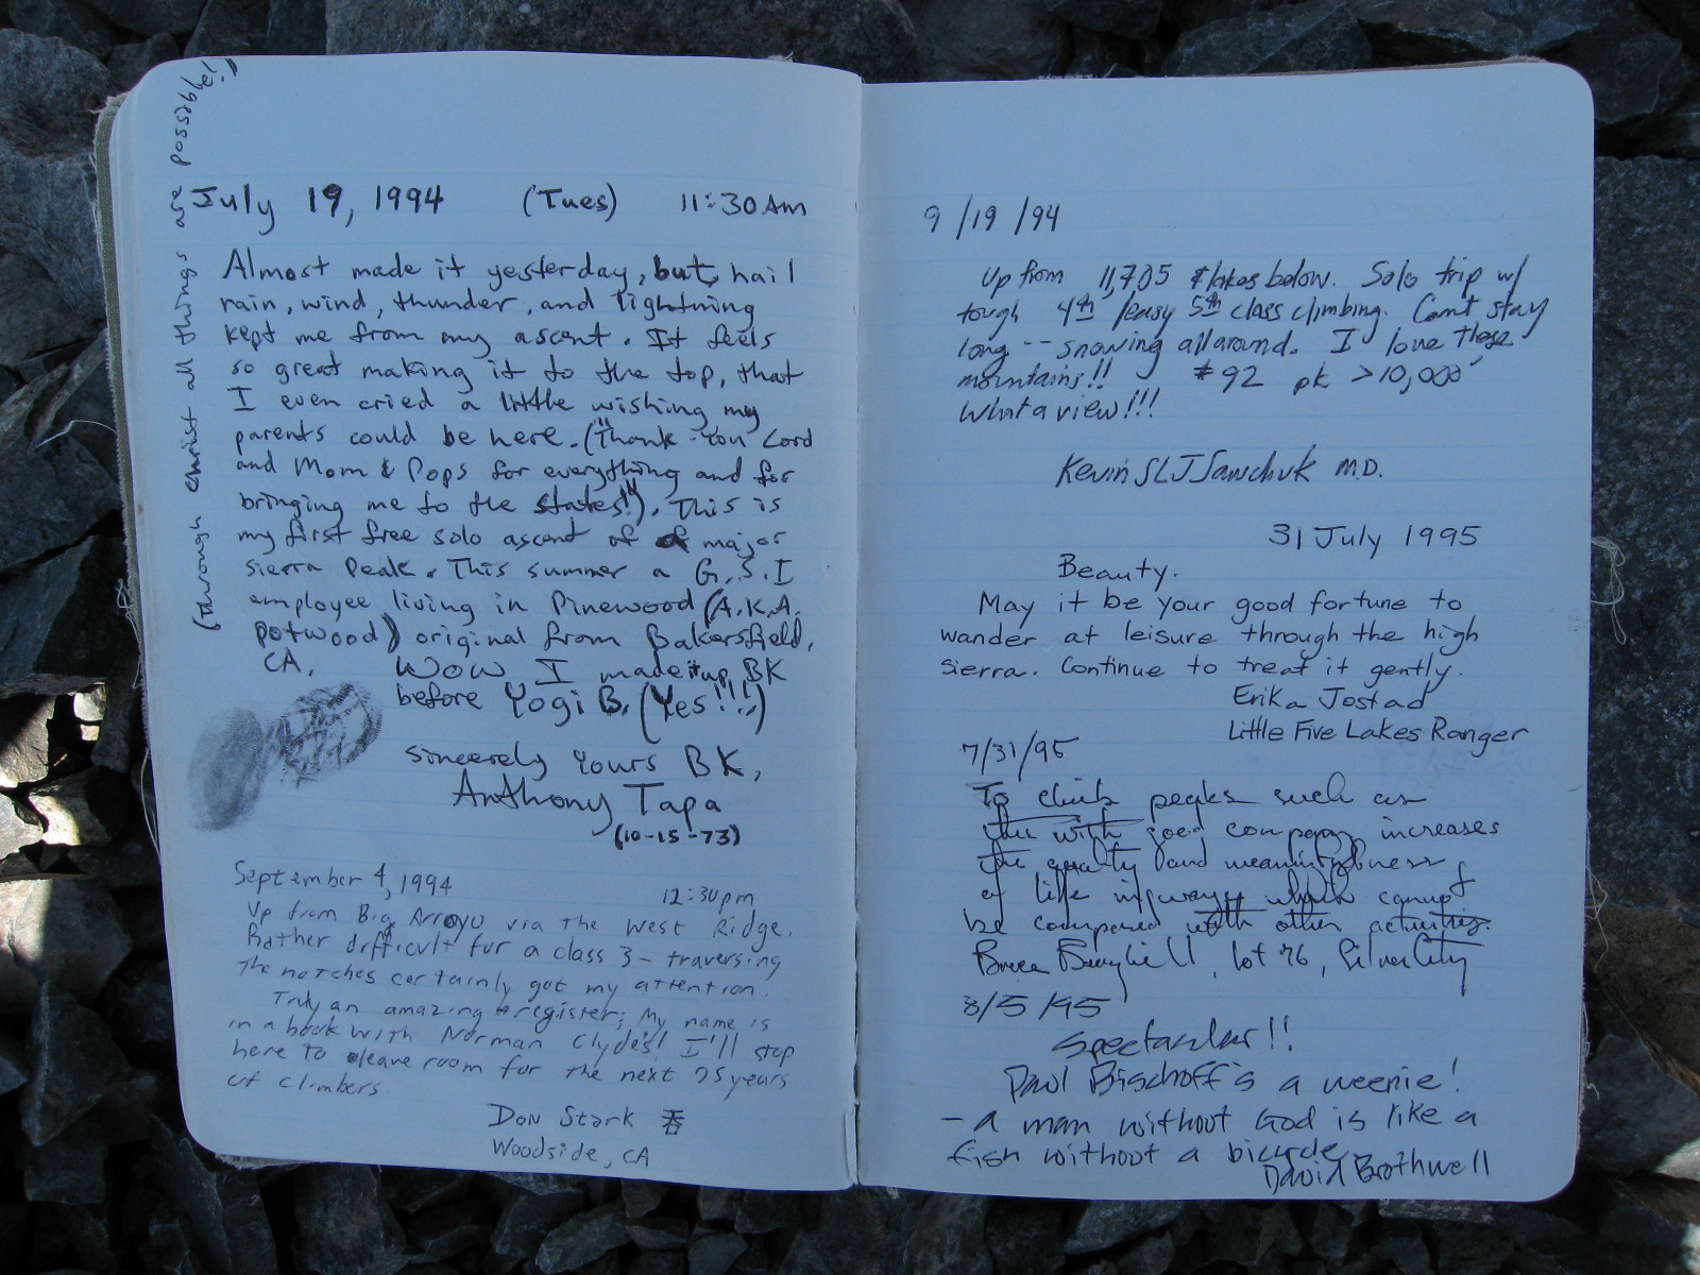 (through christ all things are possible!)
July 19, 1994 (Tues) 11:30 Am
Almost made it yesterday, but, hail
rain, wind, thunder, and lightning
kept me from my ascent. It feels
so great making it to the top, that
I even cried a little wishing my
parents could be here. ("Thank-You Lord
and Mom & Pops for everything and for
bringing me to the states!"). This is
my first free solo ascent of of major
sierra Peak. This summer a G.S.I
employee living in Pinewood (A.K.A.
potwood) original from Bakersfield,
CA. WOW I made it up BK
before Yogi B. (Yes!!!)
sincerely Yours BK,
Anthony Tapa
(10-15-73)
September 4, 1994 12:30pm
Up from Big Arroyo via the West Ridge.
Rather difficult for a class 3 - traversing
the notches certainly got my attention.
Truly an amazing register; My name is
in a book with Norman Clyde's! I'll stop
here to leave room for the next 75 years
of climbers.
Don Stark 吞
Woodside, CA
9/19/94
Up from 11,705 & lakes below. Solo trip w/
tough 4th/easy 5th class climbing. Cant stay
long -- snowing all around. I love these
mountains!! #92 pk >10,000'
What a view!!!
Kevin SLJ Sawchuk M.D.
31 July 1995
Beauty.
May it be your good fortune to
wander at leisure through the high
sierra. Continue to treat it gently.
Erika Jostad
Little Five Lakes Ranger
7/31/95
To climb peaks such as
this with good company increases
the quality and meaningfulness
of life in ways which cannot
be compared with other activities.
Bruce, lot 76, Silver City
8/5/95
Spectacular!!
Paul Bischoff's a weenie!
- a man without God is like a
fish without a bicycle
David Brothwell